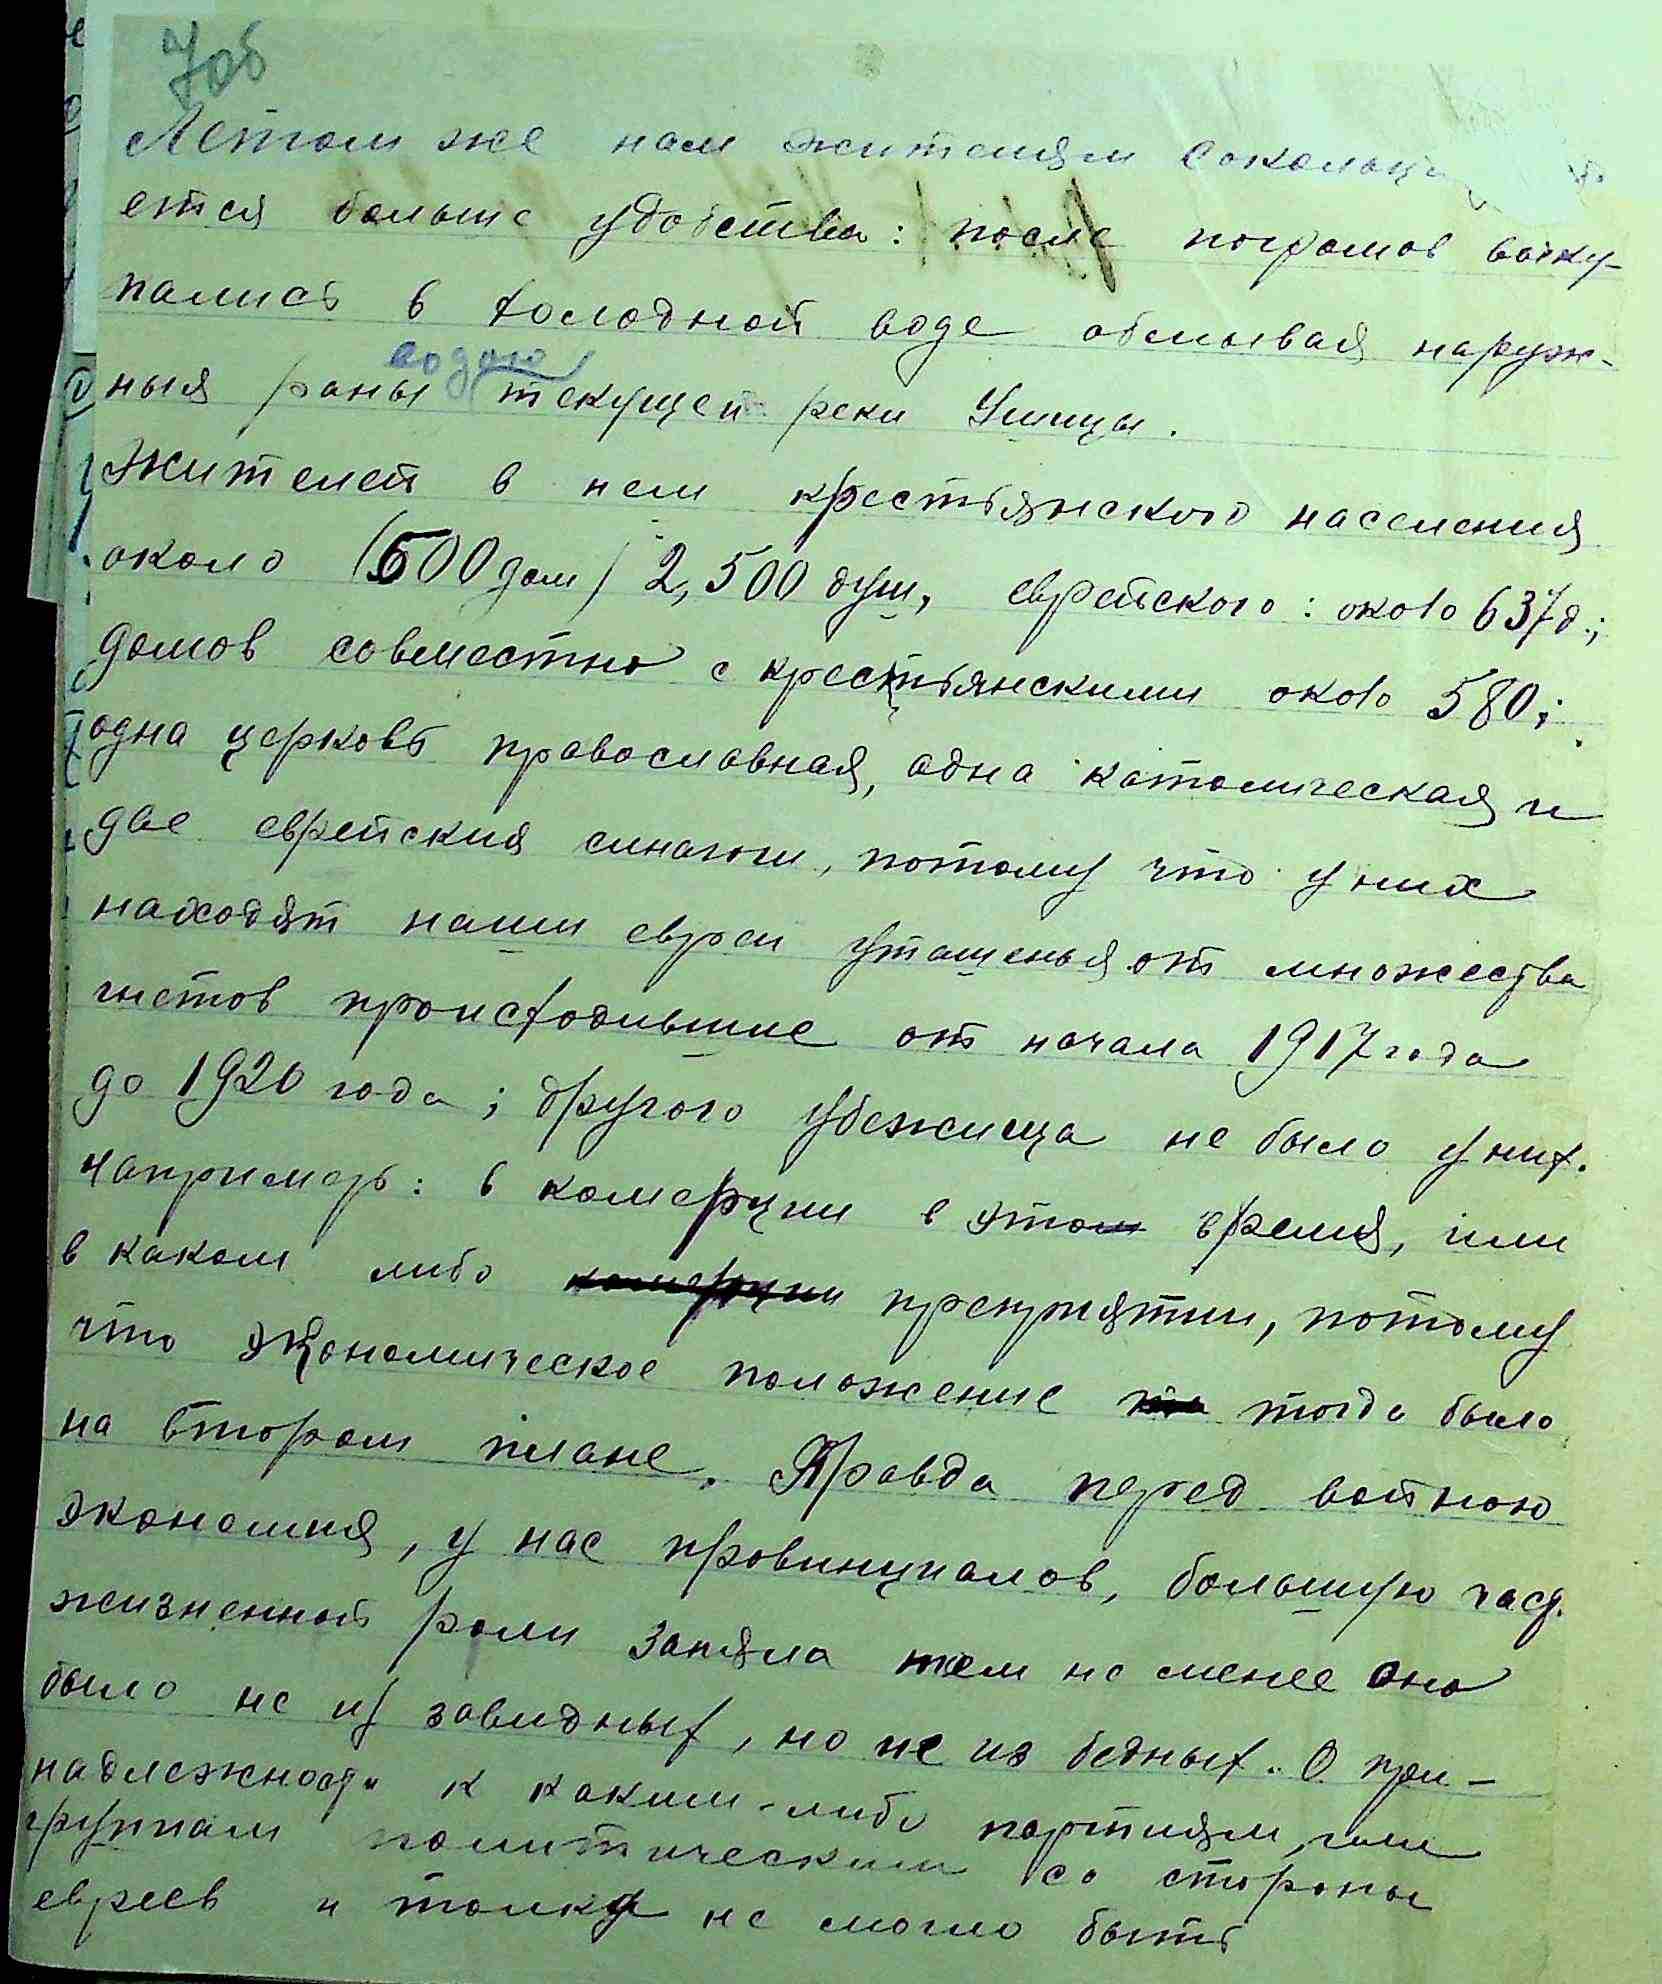 70б
Летом же нам жителям Сокольца
ется больше удобства: после погромов выку-
пались в холодной воде обмывая наруж-
водою
ныя раны текущей реки Ушицы.
Жителей в нем крестьянского населения
около (500 дом) 2,500 душ, еврейского: около 637 д.;
домов совместно с крестьянскими около 580;
одна церковь православная, одна католическая и
две еврейския синагоги, потому что у них
находят наши евреи утешенья от множества
гнетов происходившие от начала 1917 года
до 1920 года; другого убежища не было у них.
Например: в комерции в это время, или
в каком либо преприятии, потому
что экономическое положение тогда было
на втором плане. Правда перед войною
экономия, у нас провинциалов, большую част.
жизненной роли заняла тем не менее оно
было не из завидных, но не из бедных. О при-
надлежности к каким-либо партиям, или
группам политическим со стороны
евреев и толку не могло быть